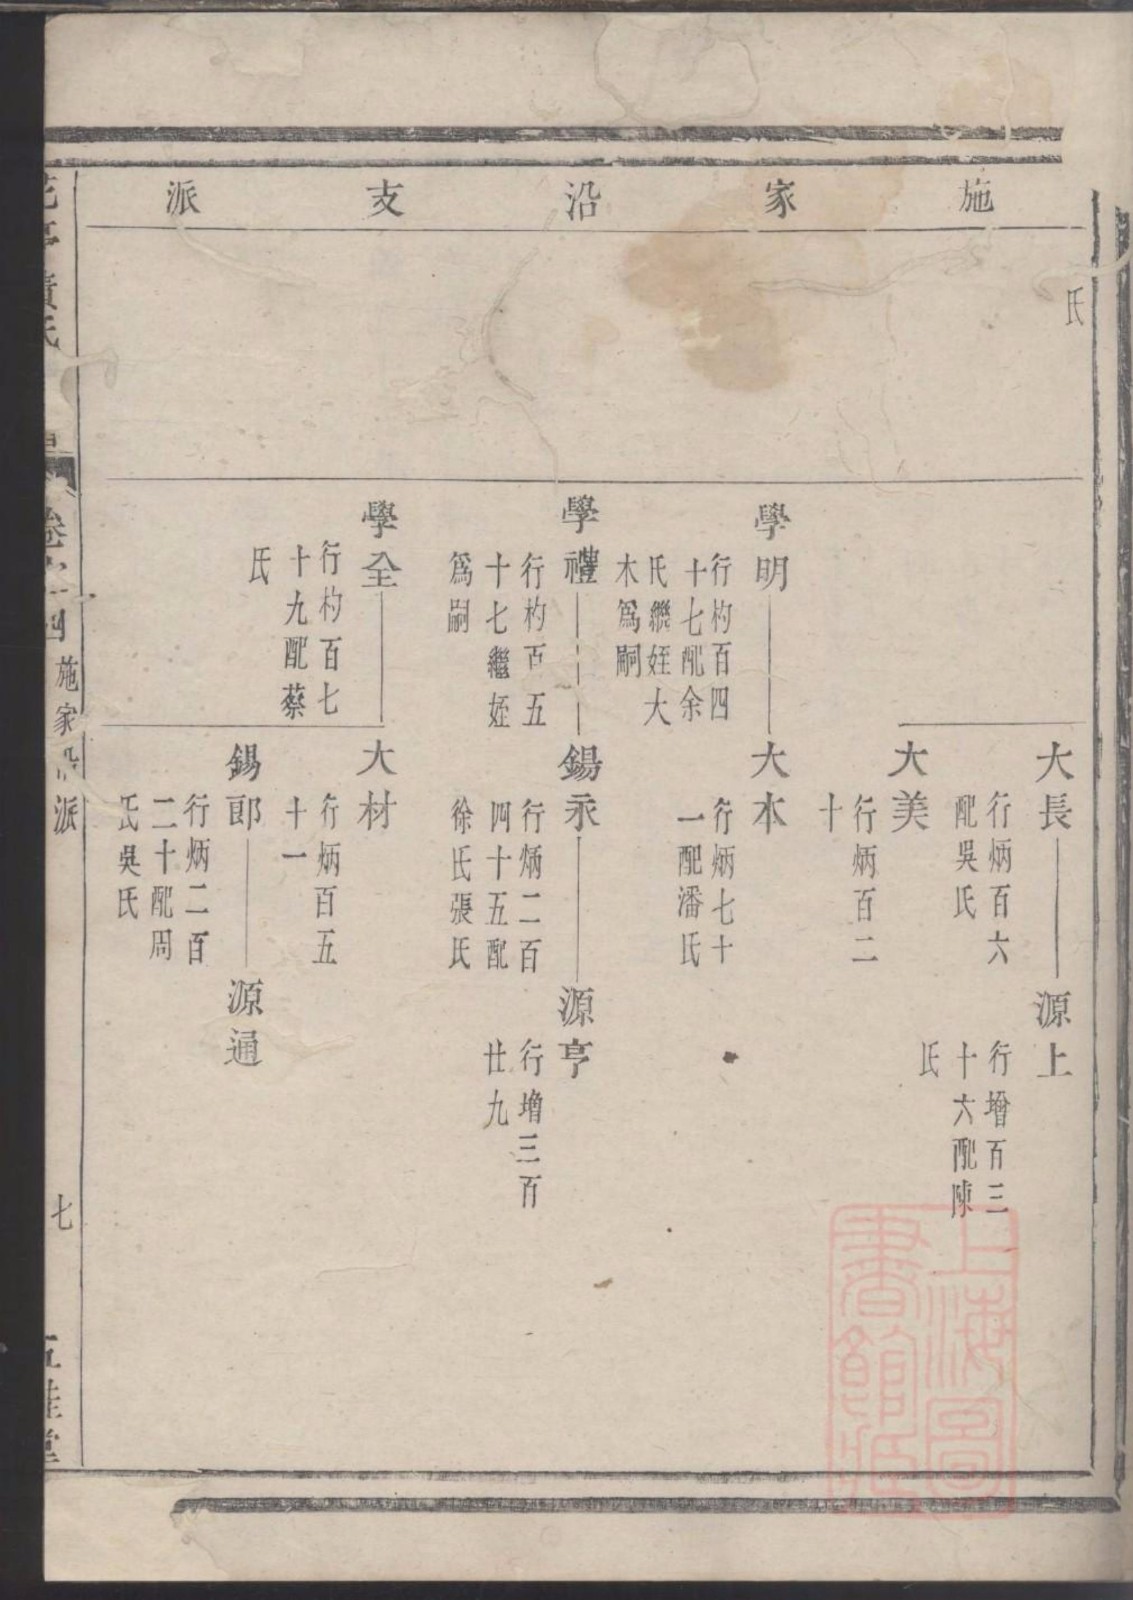 施家沿支派
氏
大長
行炳百六
配吳氏
源上
行增百三
十六配陳
氏
大美
行炳百二
十
學明
行杓百四
十七配余
氏繼姪大
木爲嗣
大本
行炳七十
一配潘氏
學禮
行杓百五
十七繼姪
爲嗣
錫永
行炳二百
四十五配
徐氏張氏
源亨
行增三百
廿九
學全
行杓百七
十九配蔡
氏
大材
行炳百五
十一
錫郎
行炳二百
二十配周
氏吳氏
源通
施家沿派
七
上海圖
書館藏